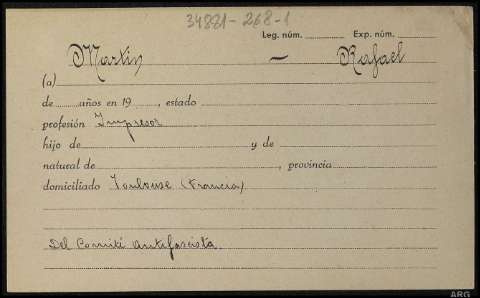 34821-268-1
Leg. núm. Exp. núm.
Martin — Rafael
(a)
de años en 19 , estado
profesión Impresor
hijo de y de
natural de , provincia
domiciliado Toulouse (Francia)
Del Comité antifascista.
ARG